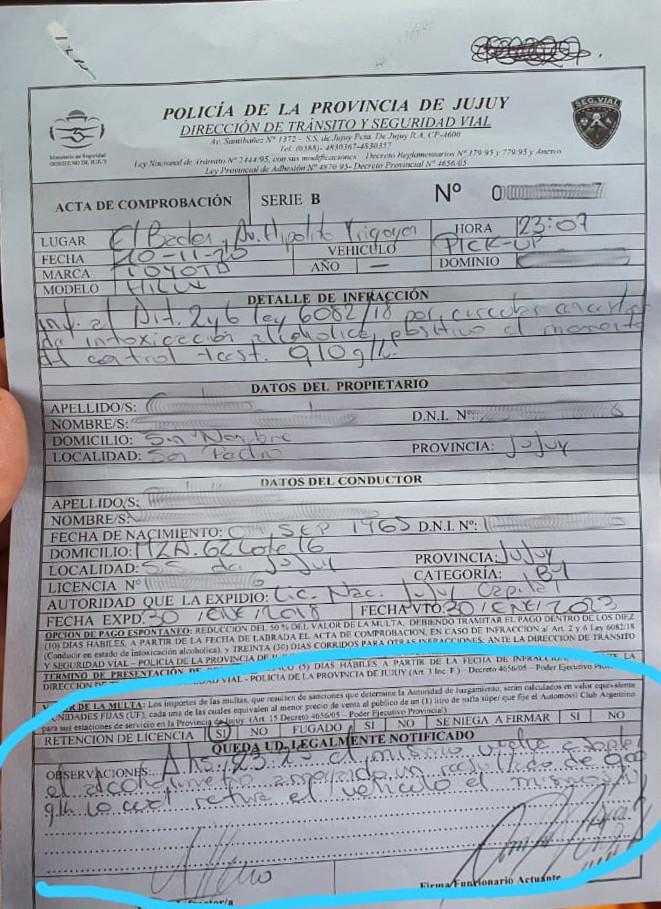 POLICÍA DE LA PROVINCIA DE JUJUY
DIRECCIÓN DE TRÁNSITO Y SEGURIDAD VIAL
Av. Santibañez Nº 1372 - S.S. de Jujuy Pcia. De Jujuy R.A. CP-4600
Tel. (0388)- 4830367-4830357
Ley Nacional de Tránsito Nº 2444/95, con sus modificaciones Decreto Reglamentarios Nº 179/95 y 779/95 y Anexos
Ley Provincial de Adhesión Nº 4870/95- Decreto Provincial Nº 4656/05
Ministerio de Seguridad
GOBIERNO DE JUJUY
SEG. VIAL
ACTA DE COMPROBACIÓN SERIE B Nº 0 7
LUGAR El Bador, Av. Hipolito Yrigoyen HORA 23:07
FECHA 10-11-20 VEHICULO PICK-UP
MARCA TOYOTA AÑO — DOMINIO
MODELO HILUX
DETALLE DE INFRACCIÓN
Inf. al Art. 2y6 ley 6082/18 por circular en estado
de intoxicación alcoholica, positivo al momento
del control test. 0,10 g/l.
DATOS DEL PROPIETARIO
APELLIDO/S:
NOMBRE/S: D.N.I. Nº:
DOMICILIO: Sin Nombre
LOCALIDAD: San Pedro PROVINCIA: Jujuy
DATOS DEL CONDUCTOR
APELLIDO/S:
NOMBRE/S:
FECHA DE NACIMIENTO: SEP 1965 D.N.I. Nº:
DOMICILIO: MZA. 62 Lote 16
LOCALIDAD: S.S. de Jujuy PROVINCIA: Jujuy
LICENCIA Nº CATEGORÍA: B1
AUTORIDAD QUE LA EXPIDIO: Lic. Nac. Jujuy Capital
FECHA EXPD: 30 / ENE / 2018 FECHA VTO: 30 / ENE / 2023
OPCION DE PAGO ESPONTANEO: REDUCCIÓN DEL 50 % DEL VALOR DE LA MULTA, DEBIENDO TRAMITAR EL PAGO DENTRO DE LOS DIEZ
(10) DIAS HABILES, A PARTIR DE LA FECHA DE LABRADA EL ACTA DE COMPROBACION, EN CASO DE INFRACCIÓN al Art. 2 y 6 Ley 6082/18
(Conducir en estado de intoxicación alcohólica), y TREINTA (30) DIAS CORRIDOS PARA OTRAS INFRACCIONES, ANTE LA DIRECCIÓN DE TRÁNSITO
Y SEGURIDAD VIAL – POLICÍA DE LA PROVINCIA DE
TERMINO DE PRESENTACIÓN DE (5) DIAS HÁBILES A PARTIR DE LA FECHA DE INFRACCIÓN,
DIRECCIÓN DE VIAL - POLICÍA DE LA PROVINCIA DE JUJUY (Art. 3 Inc. F) - Decreto 4656/05 – Poder Ejecutivo
VALOR DE LA MULTA: Los importes de las multas, que resulten de sanciones que determine la Autoridad de Juzgamiento, serán calculados en valor equivalente
UNIDADES FIJAS (UF), cada una de las cuales equivalen al menor precio de venta al público de un (1) litro de nafta súper que fije el Automóvil Club Argentino
para sus estaciones de servicio en la Provincia de Jujuy (Art. 15 Decreto 4656/05 – Poder Ejecutivo Provincial)
RETENCION DE LICENCIA SI NO FUGADO SI NO SE NIEGA A FIRMAR SI NO
QUEDA UD. LEGALMENTE NOTIFICADO
OBSERVACIONES: A hs. 23:25 el mismo vuelve a soplar
el alcoholimetro arrojando un resultado de 0,00
g/l lo cual retira el vehiculo el mismo
Firma Funcionario Actuante